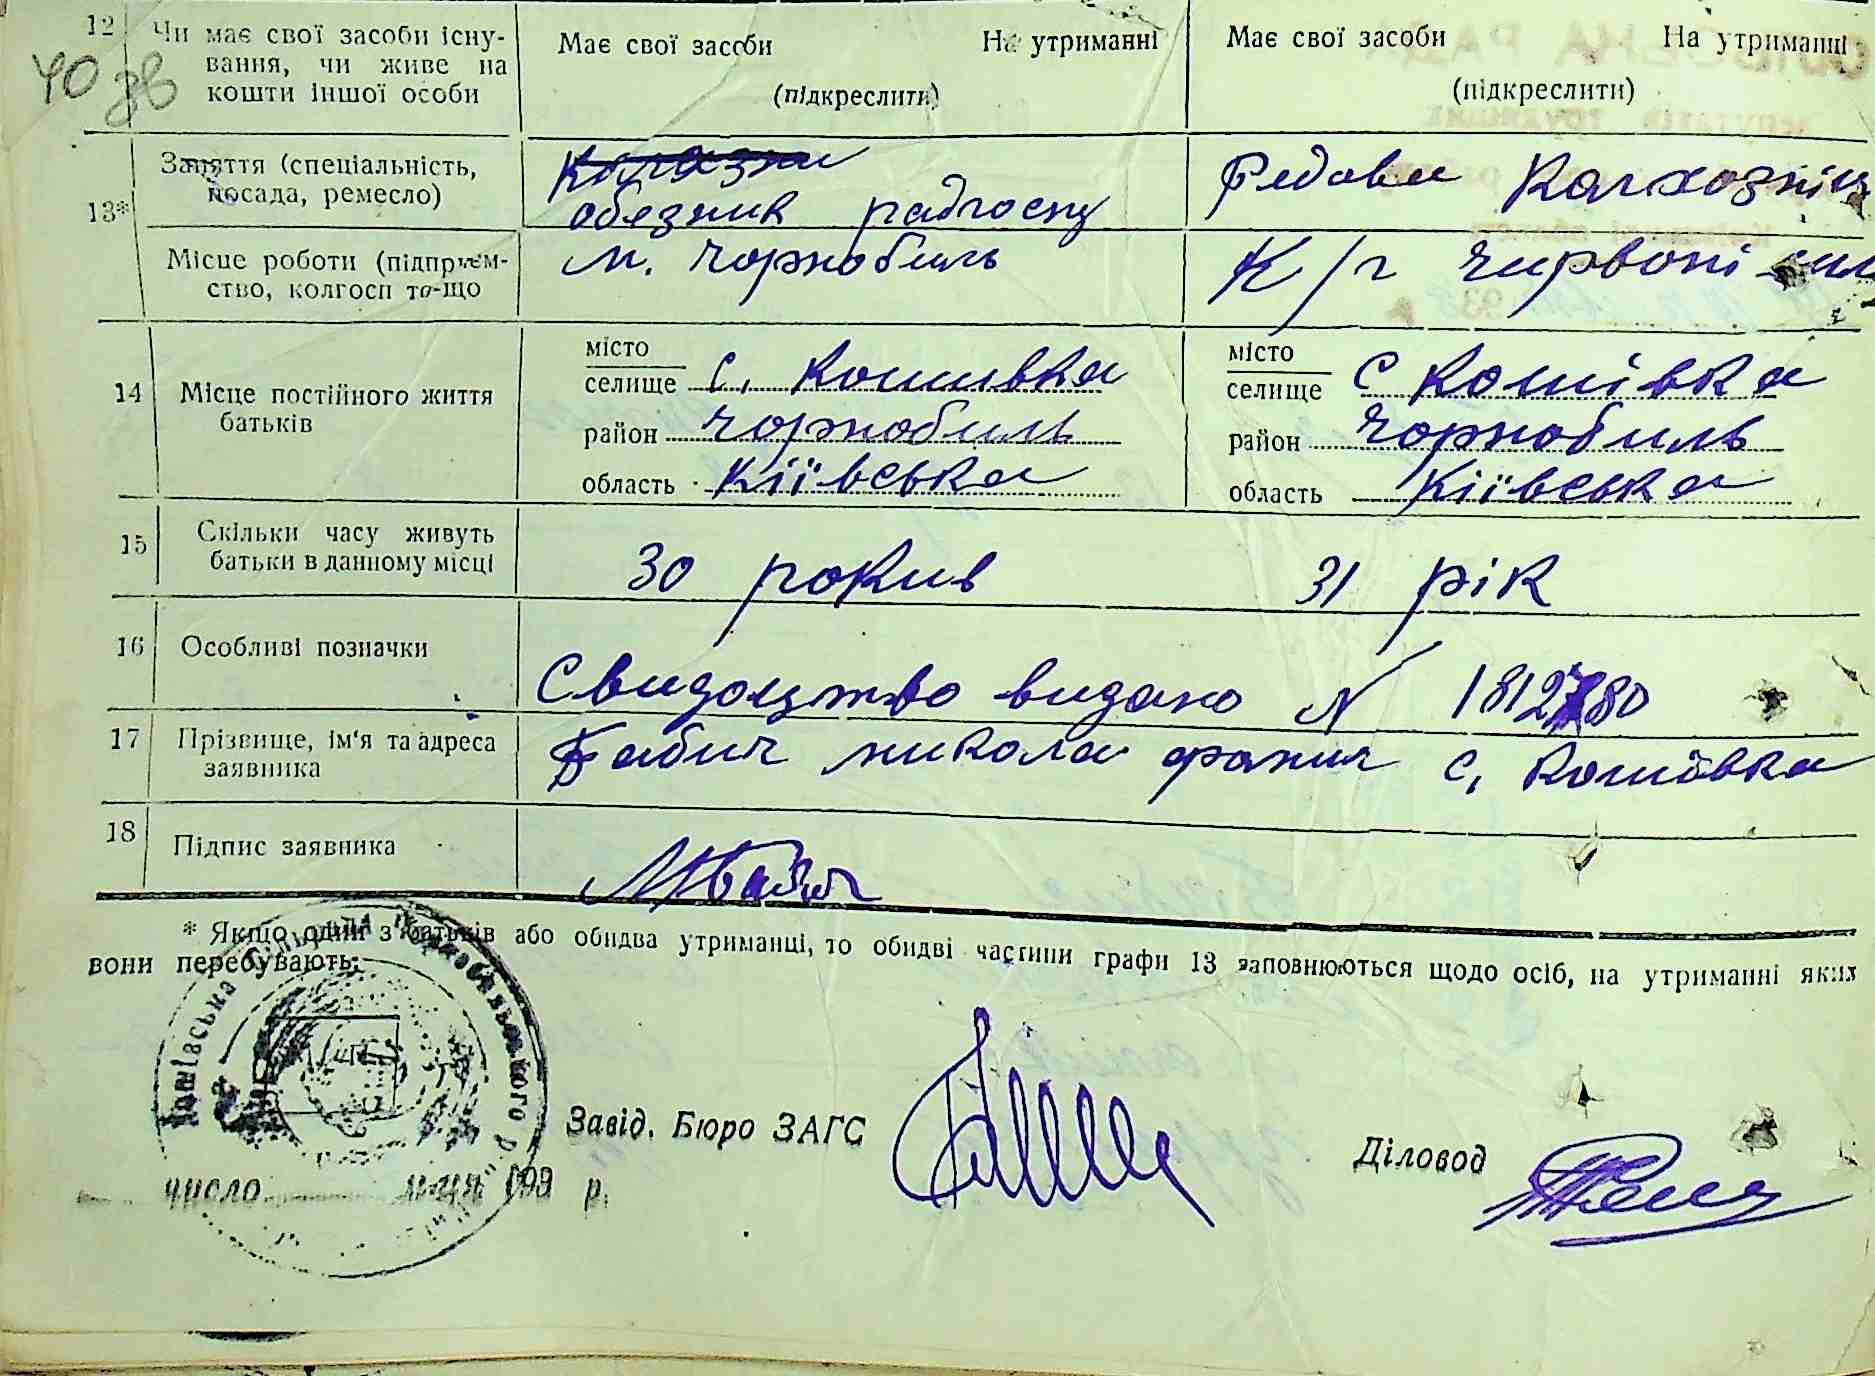 12
Чи має свої засоби існу-
вання, чи живе на
кошти іншої особи
Має свої засоби На утриманні
(підкреслити)
Має свої засоби На утриманні
(підкреслити)
40 зв
13*
Заняття (спеціальність,
посада, ремесло)
обезник радгоспу
Редова Колхозніц
Місце роботи (підприєм-
ство, колгосп то-що
м. Чорнобиль
К/г Червоні
14
Місце постійного життя
батьків
місто
селище с. Кошивка
район Чорнобиль
область Кіївська
місто
селище с Кошівка
район Чорнобиль
область Кіївська
15
Скільки часу живуть
батьки в данному місці
30 рокив
31 рік
16 Особливі позначки
Свидоцтво видано N 1812780
17 Прізвище, ім'я та адреса
заявника
Бабич микола с. Кошовка
18 Підпис заявника
МБабич
* Якщо один з батьків або обидва утриманці, то обидві частини графи 13 заповнюються щодо осіб, на утриманні яких
вони перебувають.
Кошівська сільрада Чорнобильського
Завід. Бюро ЗАГС
Діловод
число м-ця 193 р.